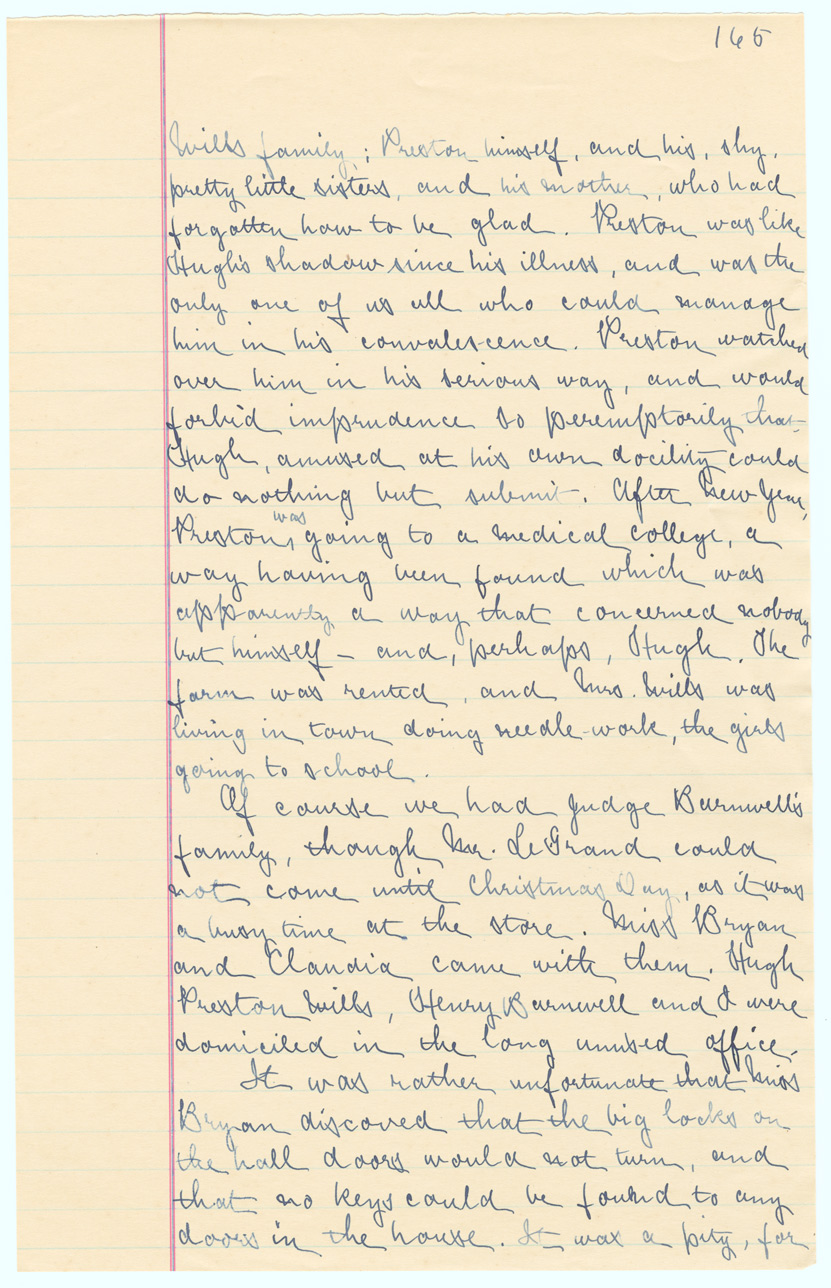 165
Wills family; Preston himself, and his, shy,
pretty little sisters, and his mother, who had
forgotten how to be glad. Preston was like
Hugh's shadow since his illness, and was the
only one of us all who could manage
him in his convalescence. Preston watched
over him in his serious way, and would
forbid imprudence so peremptorily that
Hugh, amused at his own docility could
do nothing but submit. After New Year,
was
Preston, going to a medical college, a
way having been found which was
apparently a way that concerned nobody
but himself – and, perhaps, Hugh. The
farm was rented, and Mrs. Wills was
living in town doing needle-work, the girls
going to school.
Of course we had Judge Barnwell's
family, though Mr. LeGrand could
not come until Christmas Day, as it was
a busy time at the store. Miss Bryan
and Claudia came with them. Hugh
Preston Wills, Henry Barnwell and I were
domiciled in the long unused office.
It was rather unfortunate that Miss
Bryan discoved that the big locks on
the hall doors would not turn, and
that no keys could be found to any
doors in the house. It was a pity, for